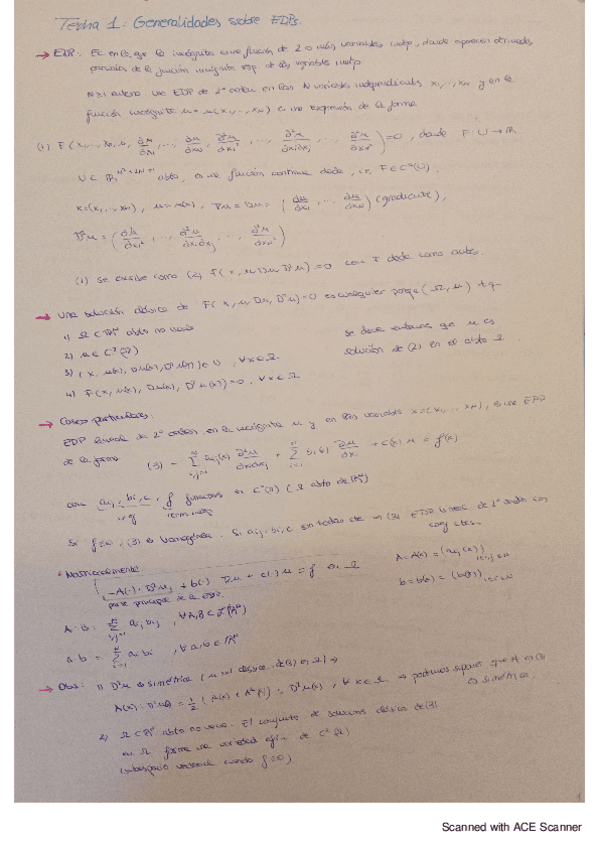 Tema 1: Generalidades sobre EDPs.
→ EDP: Ec en la que la incógnita es una función de 2 o más variables indep, donde aparecen derivadas
parciales de la función incógnita resp. de las variables indep
N≥1 entero. Una EDP de 2º orden en las N variables independientes x₁,...,x_N y en la
función incógnita u = u(x₁,...,x_N) es una expresión de la forma
(1) F(x₁,...,x_N, u, ∂u/∂x₁, ..., ∂u/∂x_N, ∂²u/∂x₁², ..., ∂²u/∂x_i∂x_j, ..., ∂²u/∂x_N²) = 0, donde F: U → ℝ
abto, es una función continua dada, i.e. F ∈ C⁰(U).
x = (x₁,...,x_N), u = u(x), ∇u = Du = (∂u/∂x₁, ..., ∂u/∂x_N) (gradiente),
D²u = (∂²u/∂x₁², ..., ∂²u/∂x_i∂x_j, ..., ∂²u/∂x_N²)
(1) se escribe como (2) F(x, u, Du, D²u) = 0 con F dada como antes.
→ Una solución clásica de F(x, u, Du, D²u) = 0 es cualquier pareja (Ω, u) tq
1) Ω ⊂ ℝᴺ abto no vacío
2) u ∈ C²(Ω)
3) (x, u(x), Du(x), D²u(x)) ∈ U, ∀x ∈ Ω
4) F(x, u(x), Du(x), D²u(x)) = 0, ∀x ∈ Ω
se dice entonces que u es
solución de (2) en el abto Ω
→ Casos particulares:
EDP lineal de 2º orden en la incógnita u y en las variables x = (x₁,...,x_N), es una EDP
de la forma (3) - Σ a_ij(x) ∂²u/∂x_i∂x_j + Σ b_i(x) ∂u/∂x_i + c(x) u = f(x)
con a_ij, b_i, c, f funciones en C⁰(Ω) (Ω abto de ℝᴺ)
Si f≡0, (3) es homogénea. Si a_ij, b_i, c son todas cte → (3) EDP lineal de 2º orden con
coef ctes.
• Matricialmente:
-A(·) : D²u + b(·) · ∇u + c(·) u = f en Ω
parte principal de la EDP
A = A(x) = (a_ij(x))
b = b(x) = (b_i(x))
A : B = Σ a_ij b_ij, ∀A,B ∈
a·b = Σ a_i b_i, ∀a,b ∈ ℝᴺ
→ Obs: 1) D²u es simétrica (u sol clásica de (3) en Ω) ⇒
A(x) : D²u(x) = 1/2 (A(x) + Aᵗ(x)) : D²u(x), ∀x ∈ Ω → podemos suponer que A en (3)
es simétrica.
2) Ω ⊂ ℝᴺ abto no vacío. El conjunto de soluciones clásicas de (3)
en Ω forma una variedad afín de C²(Ω)
(subespacio vectorial cuando f≡0)
1
Scanned with ACE Scanner